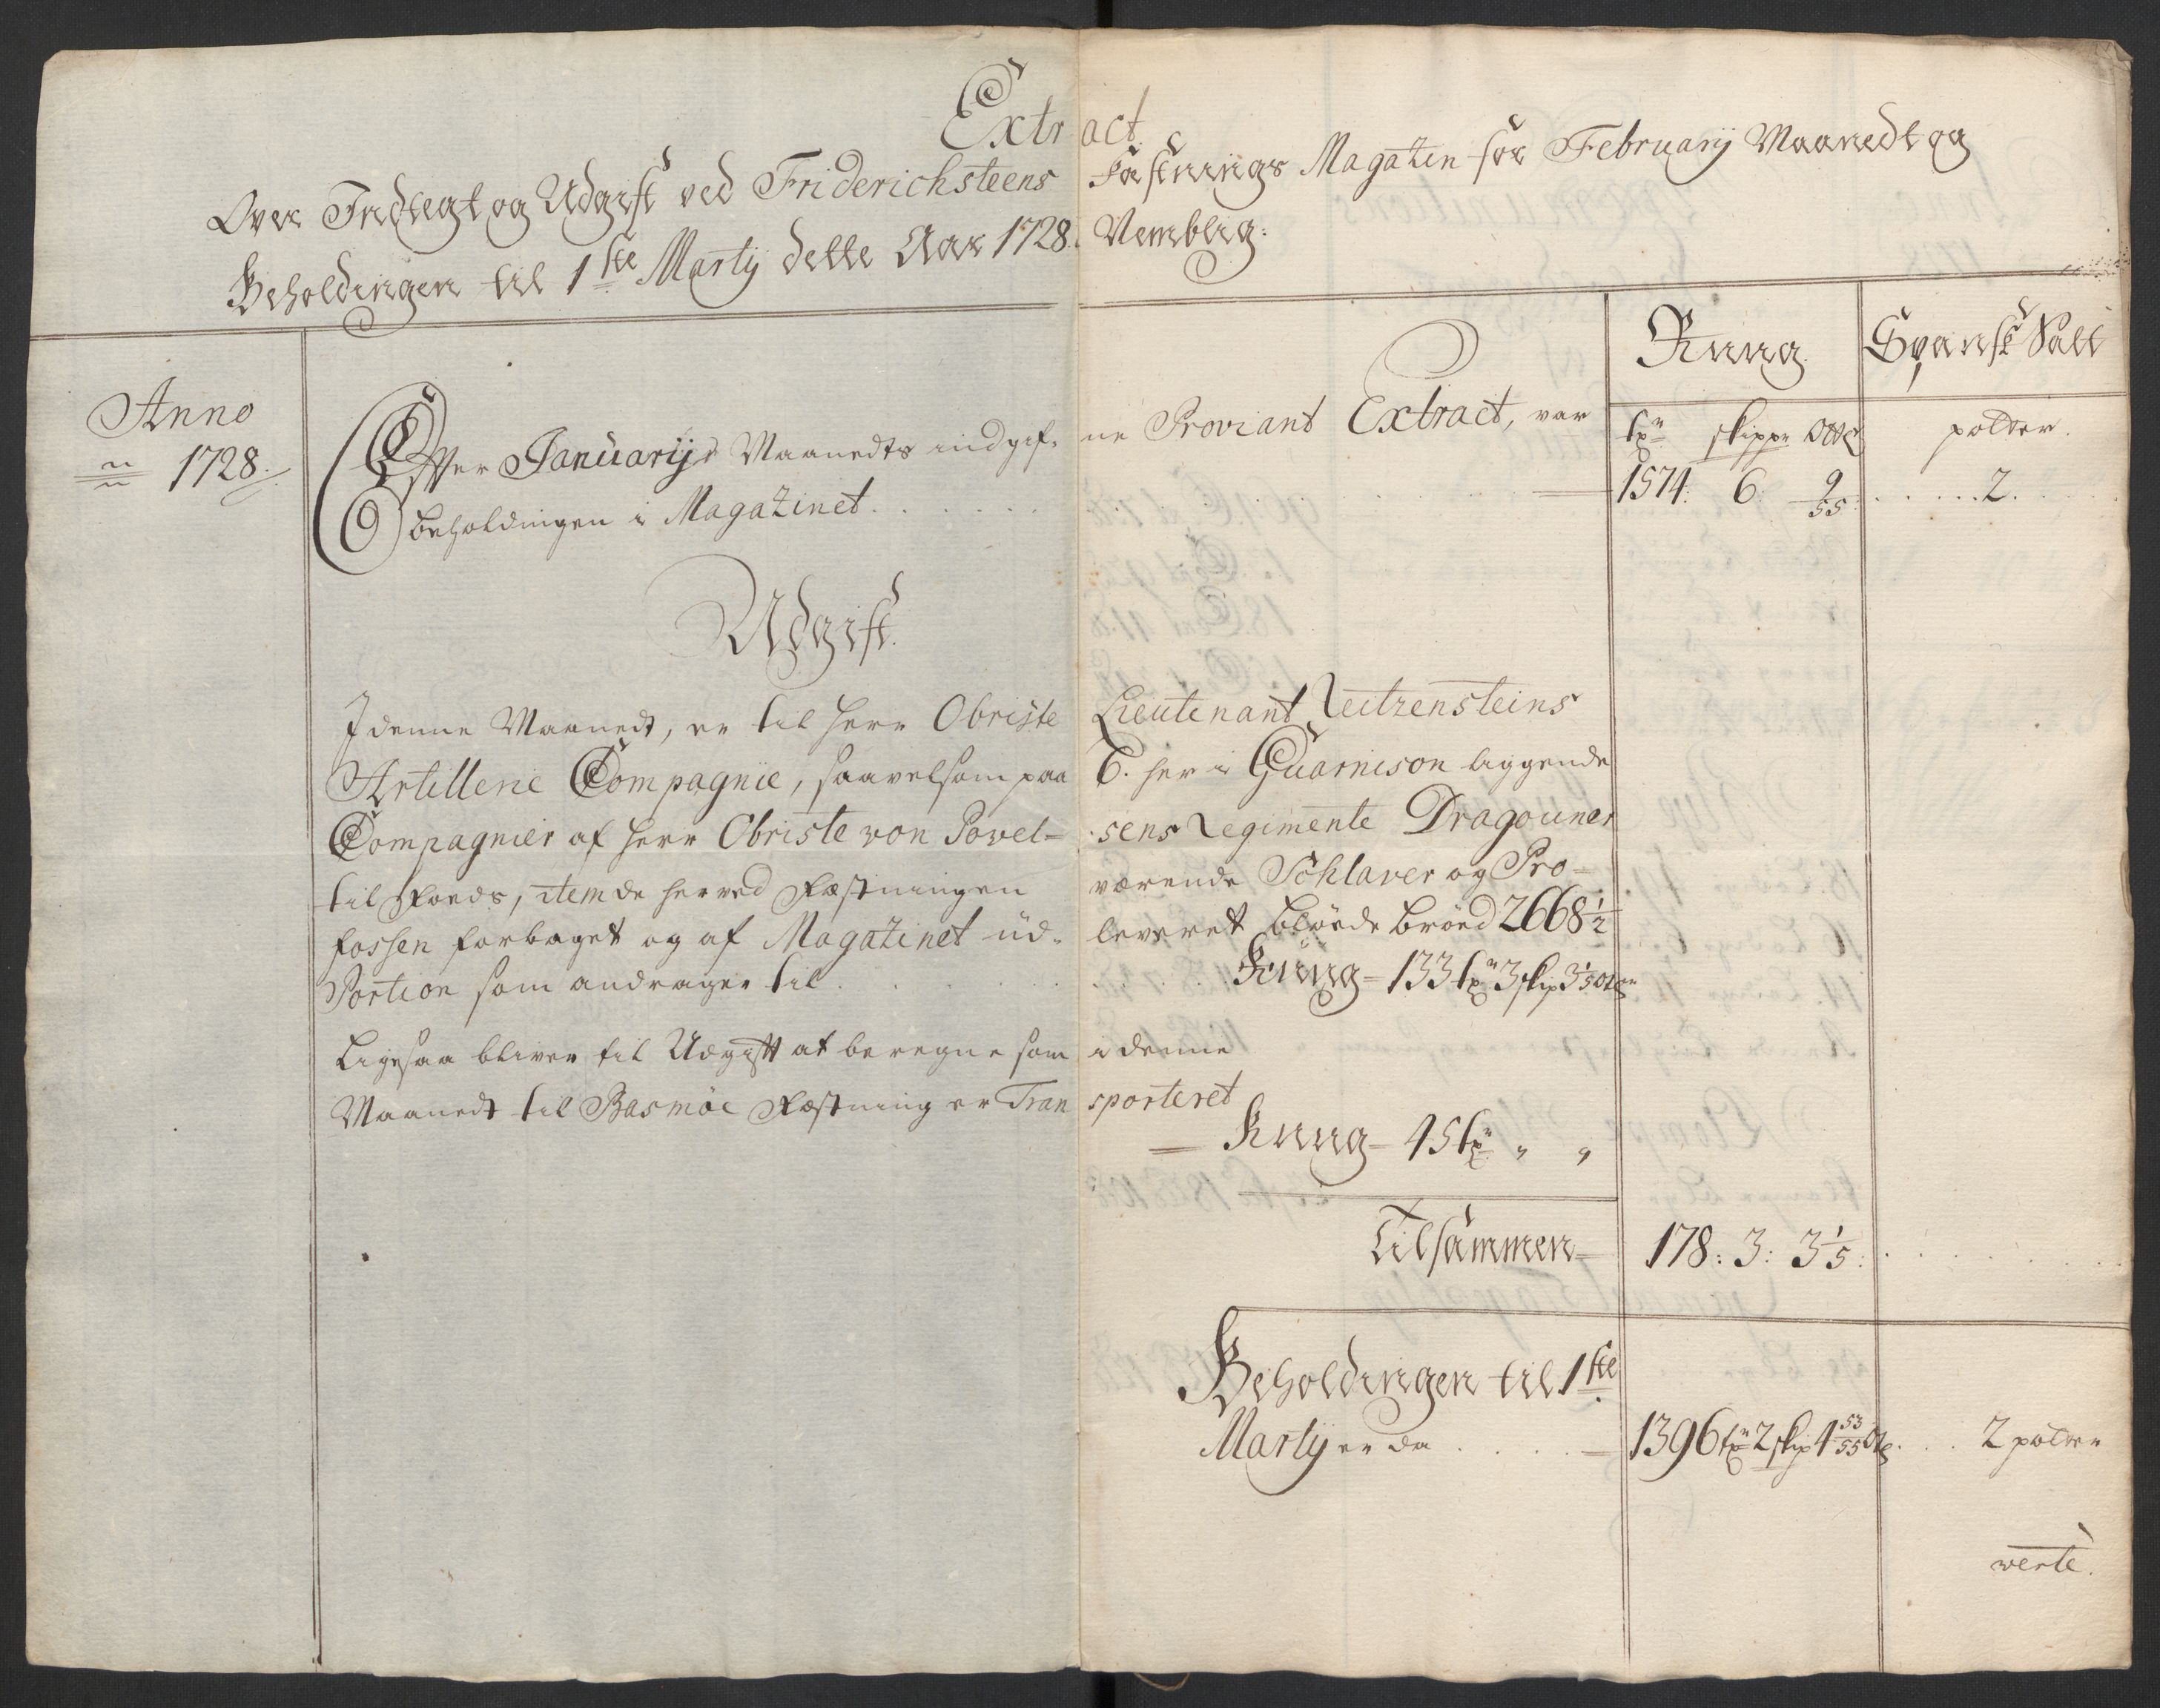 Extract
Over Indtegt og Udgift ved Friderichsteens Fæstnings Magazin for February Maanedt og
Beholdingen til 1ste Marty dette Aar 1728. Nemblig:
Rung Spansk Salt
Anno
1728.
tør skippr Ottr potter.
Effter Januarijs Maanedts indgifne Proviant Extract, var
beholdingen i Magazinet. 1574. 6. 9/55 2.
Udgift.
I denne Maanedt, er til herr Obriste Lieutenant Reitzensteins
Artillerie Compagnie, saavelsom paa 6. her i Guarnison liggende
Compagnier af herr Obriste von Povel=sens Regimente Dragouner
til Foeds, item de her ved Fæstningen værende Schlaver og Pro=
fossen forbaget og af Magazinet udleveret blöde Bröed 2668 1/2
Portion som andrager til Rung = 133 tr 3 skip 3 1/5 Ottr
Ligesaa bliver til Udgift at beregne som i denne
Maanedt til Basmöe Fæstning er Transporteret
Rung = 45 tr " "
Tilsammen = 178: 3: 3 1/5:
Beholdingen til 1ste
Marty er da 1396 tr 2 skip 4 53/55 Ottr 2 potter
verte.